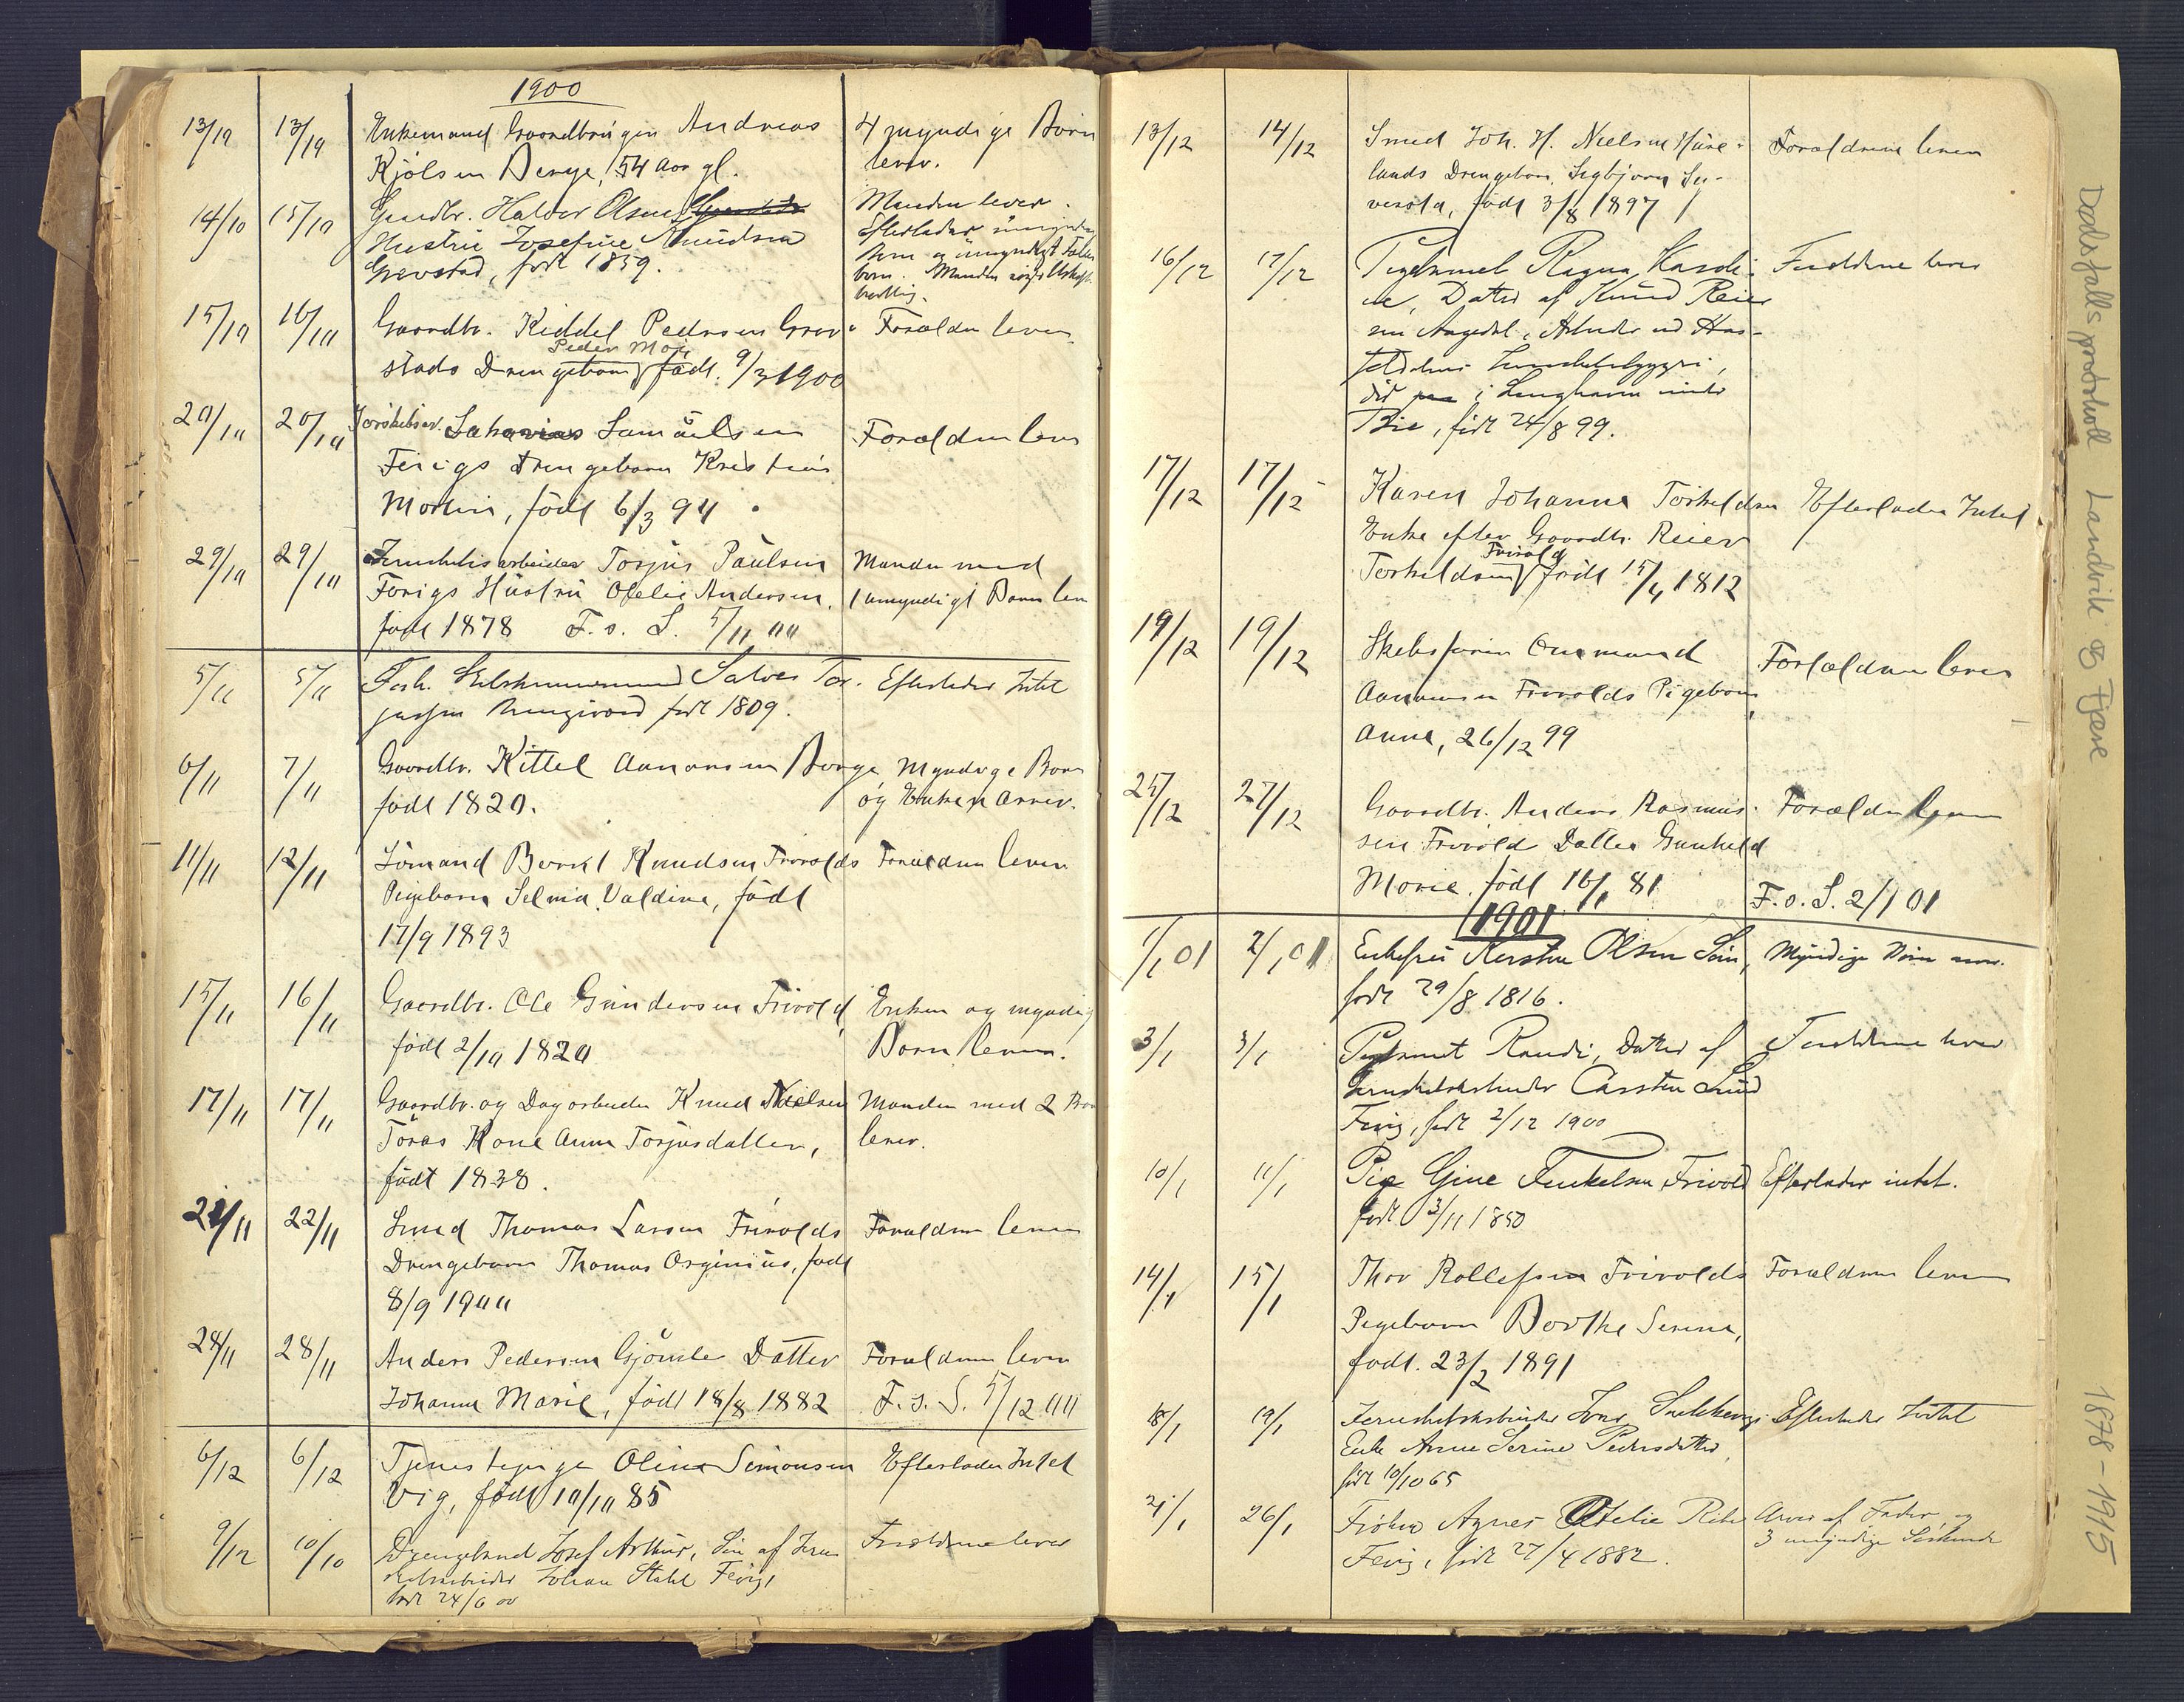 1900
13/10 13/10 Enkemand Gaardbruger Andreas 4 myndige Børn
Kjølsen Berge, 54 Aar gl. lever.
14/10 15/10 Gaardbr. Halvor Olsen Manden lever.
Hustru Josefine Knudsen Efterlader
Grevstad, født 1859. Børn og umyndigt
barn. Manden
15/10 16/10 Gaardbr. Kiddel Pedersen Grev- Forældre lever
Peder
stads Drengebarn født 9/3 1900
20/10 20/10 Jernskibsarb. Samuelsen Forældrene lever
Fevigs Drengebarn Kristian
Martin, født 6/3 94
29/10 29/10 Jernskibsarbeider Torjus Paulsen Manden med
Fevigs Hustru Ofelie Andersen, 1 umyndigt Barn lever
født 1878 F. s. L. 5/11 00
5/11 5/11 Salve Tor- Efterlader Intet
jussen født 1809.
6/11 7/11 Gaardbr. Kittel Aanonsen Berge Myndige Børn
født 1820. og Enken arver.
11/11 12/11 Sømand Berent Knudsen Frivolds Forældrene lever
Pigebarn Selma Valdine, født
17/9 1893
15/11 16/11 Gaardbr. Ole Gundersen Frivold Enken og myndige
født 2/10 1820 Børn lever.
17/11 17/11 Gaardbr. og Dagarbeider Knud Nielsen Manden med 2 Børn
Töras Kone Anne Torjusdatter, lever.
født 1838.
21/11 22/11 Smed Thomas Larsen Frivolds Forældrene lever
Drengebarn Thomas Orginius, født
8/9 1900
28/11 28/11 Anders Pedersen Gjömle Datter Forældrene lever
Johanne Marie, født 18/8 1882 F. s. L. 5/12 00
6/12 6/12 Tjenestepige Oline Simonsen Efterlader Intet
Vig, født 10/10 85
9/12 10/10 Drengebarnet Josef Arthur, Søn af Jern- Forældrene lever
skibsarbeider Johan Stahl Fevig,
født 24/6 00
13/12 14/12 Smed Joh. H. Nielsen Hure- Forældrene lever
lands Drengebarn, Sigbjørn
født 3/8 1897
16/12 17/12 Pigebarnet Ragna Karoli- Forældrene lever
ne, Datter af Knud Reier
sen Aagedal, Arbeider ved Has-
seldalens Jernskibsbyggeri,
død i Lunghavn under
Bie, født 24/8 99.
17/12 17/12 Karen Johanne Torkeldsen Efterlader Intet
Enke efter Gaardbr. Reier
Frivold
Torkeldsen født 15/4 1812
19/12 19/12 Skibsfører Aanund Forældrene lever
Aanonsen Frivolds Pigebarn
Anna, 26/12 99
25/12 27/12 Gaardbr. Anders Rasmus- Forældre lever
sen Frivold Datter Gunhild
Marie, født 16/1 81 F. s. L. 2/1 01
1901
1/1 01 2/1 01 Enkefru Kirstine Olsen Myndige Børn arver.
født 29/8 1816.
3/1 3/1 Pigebarnet Randi, Datter af Forældrene lever
Jernskibsarbeider Carsten Lund
Fevig, født 2/12 1900
10/1 11/1 Pige Gine Terkelsen Frivold Efterlader intet.
født 3/11 1850
14/1 15/1 Thor Rollefsen Frivolds Forældrene lever
Pigebarn Borthe Serine,
født 23/2 1891
18/1 19/1 Jernskibsarbeider Efterlader Intet
Enke Anne Serine Pedersdatter
født 10/10 65
21/1 26/1 Frøken Agnes Otelie Arves af Fader og
Fevig, født 27/4 1882. 3 umyndige Søskende
Dødsfallsprotokoll Landvik og Fjære 1878-1915